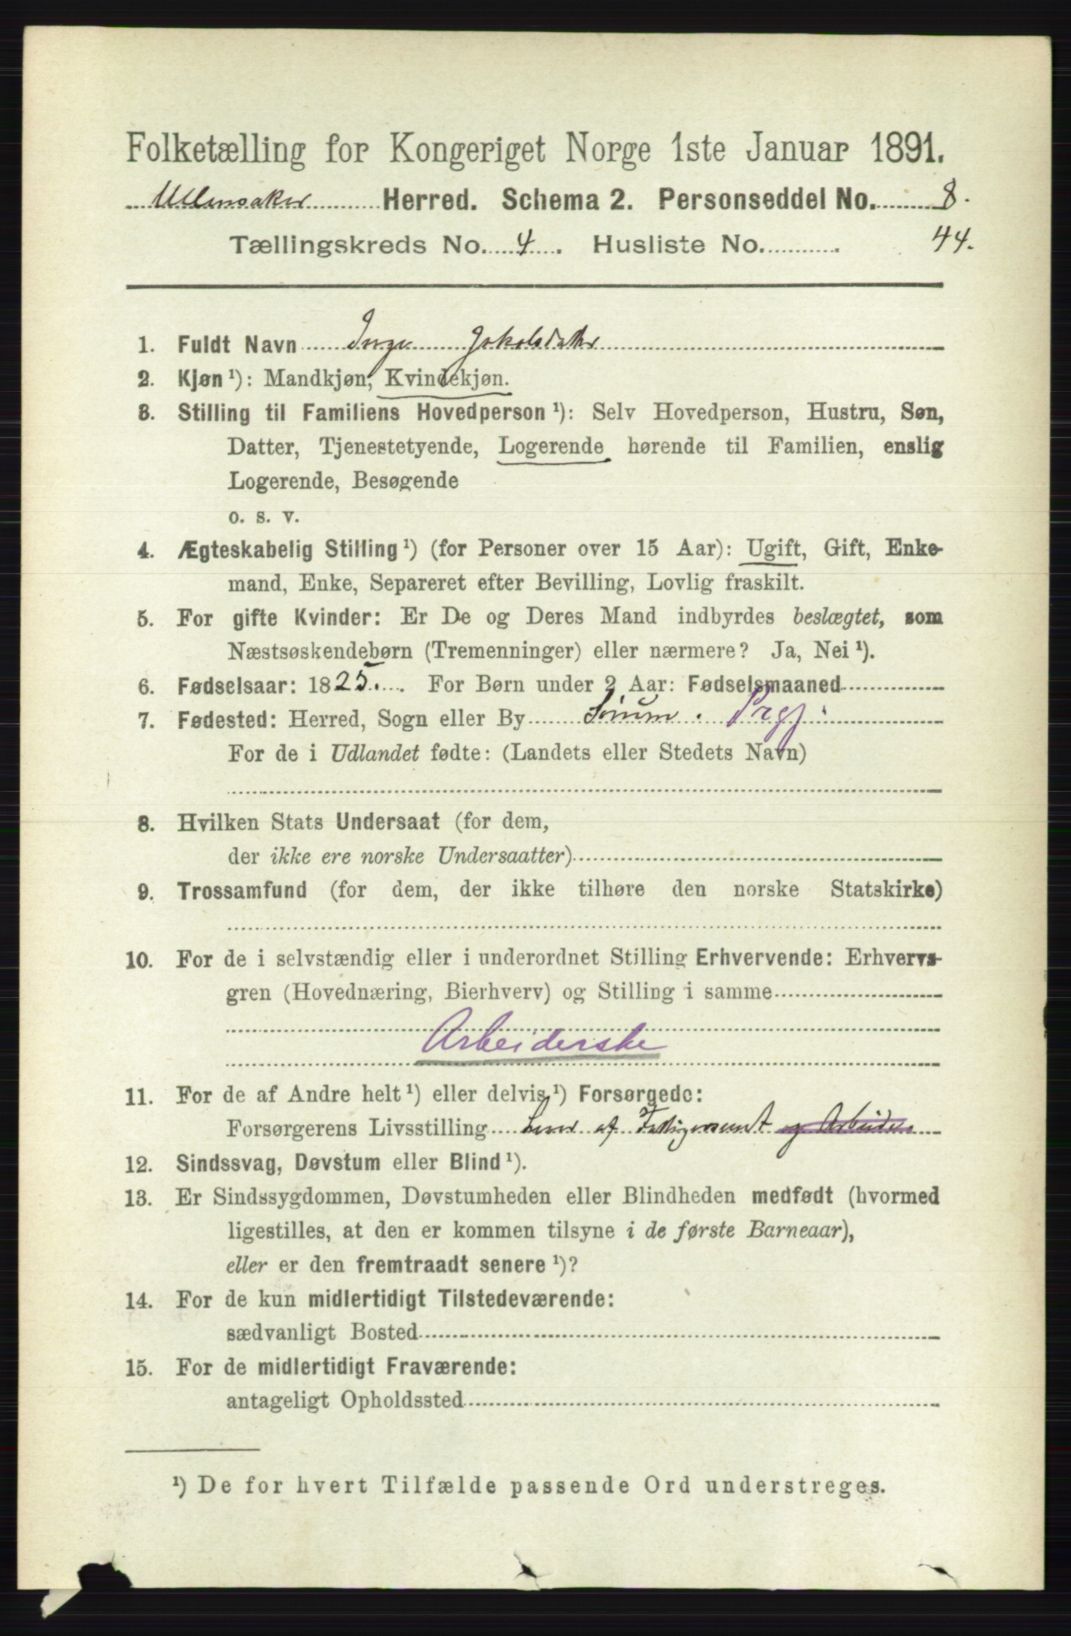 Folketælling for Kongeriget Norge 1ste Januar 1891.
Ullensaker Herred. Schema 2. Personseddel No. 8.
Tællingskreds No. 4. Husliste No. . 44.
1. Fuldt Navn Inge Jakobsdatter
2. Kjøn ¹): Mandkjøn, Kvindekjøn.
3. Stilling til Familiens Hovedperson ¹): Selv Hovedperson, Hustru, Søn,
Datter, Tjenestetyende, Logerende hørende til Familien, enslig
Logerende, Besøgende
o. s. v.
4. Ægteskabelig Stilling ¹) (for Personer over 15 Aar): Ugift, Gift, Enke-
mand, Enke, Separeret efter Bevilling, Lovlig fraskilt.
5. For gifte Kvinder: Er De og Deres Mand indbyrdes beslægtet, som
Næstsøskendebørn (Tremenninger) eller nærmere? Ja, Nei ¹).
6. Fødselsaar: 1825. For Børn under 2 Aar: Fødselsmaaned
7. Fødested: Herred, Sogn eller By Sørum. Prgj:
For de i Udlandet fødte: (Landets eller Stedets Navn)
8. Hvilken Stats Undersaat (for dem,
der ikke ere norske Undersaatter)
9. Trossamfund (for dem, der ikke tilhøre den norske Statskirke)
10. For de i selvstændig eller i underordnet Stilling Erhvervende: Erhvervs-
gren (Hovednæring, Bierhverv) og Stilling i samme
Arbeiderske
11. For de af Andre helt ¹) eller delvis ¹) Forsørgede:
Forsørgerens Livsstilling Lever af Fattigvesenet og Arbeide
12. Sindssvag, Døvstum eller Blind ¹).
13. Er Sindssygdommen, Døvstumheden eller Blindheden medfødt (hvormed
ligestilles, at den er kommen tilsyne i de første Barneaar),
eller er den fremtraadt senere ¹)?
14. For de kun midlertidigt Tilstedeværende:
sædvanligt Bosted
15. For de midlertidigt Fraværende:
antageligt Opholdssted
¹) De for hvert Tilfælde passende Ord understreges.